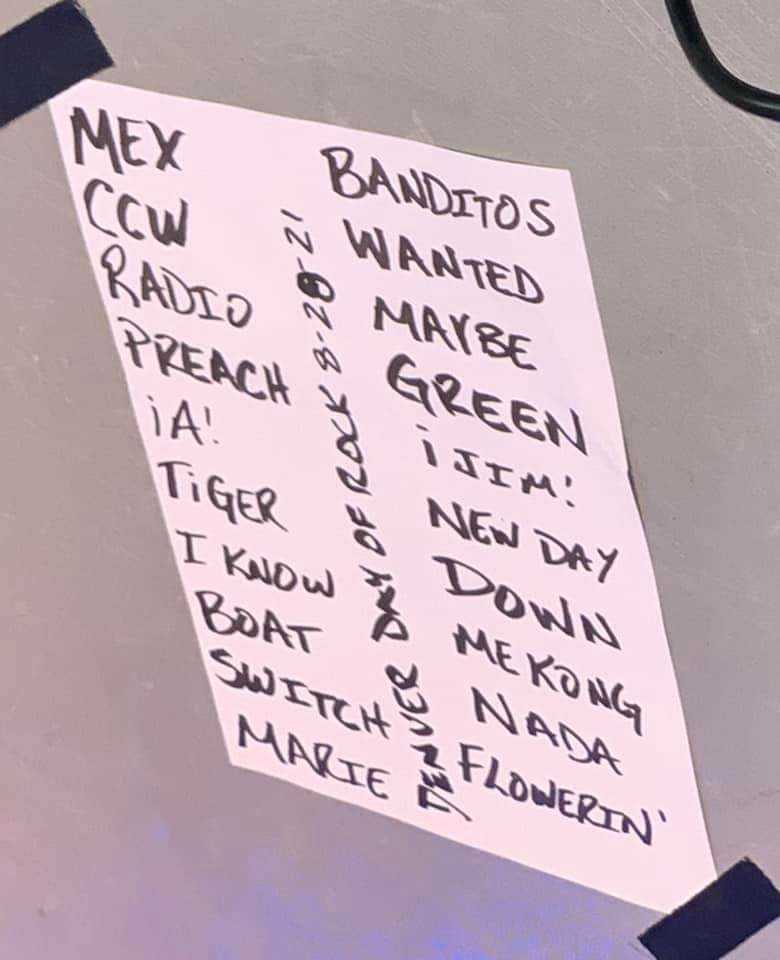 MEX
CCW
RADIO
PREACH
¡A!
TiGER
I KNOW
BOAT
SWITCH
MARIE
DENVER DAY OF ROCK 8-28-21
BANDITOS
WANTED
MAYBE
GREEN
¡JIM!
NEW DAY
DOWN
MEKONG
NADA
FLOWERIN'